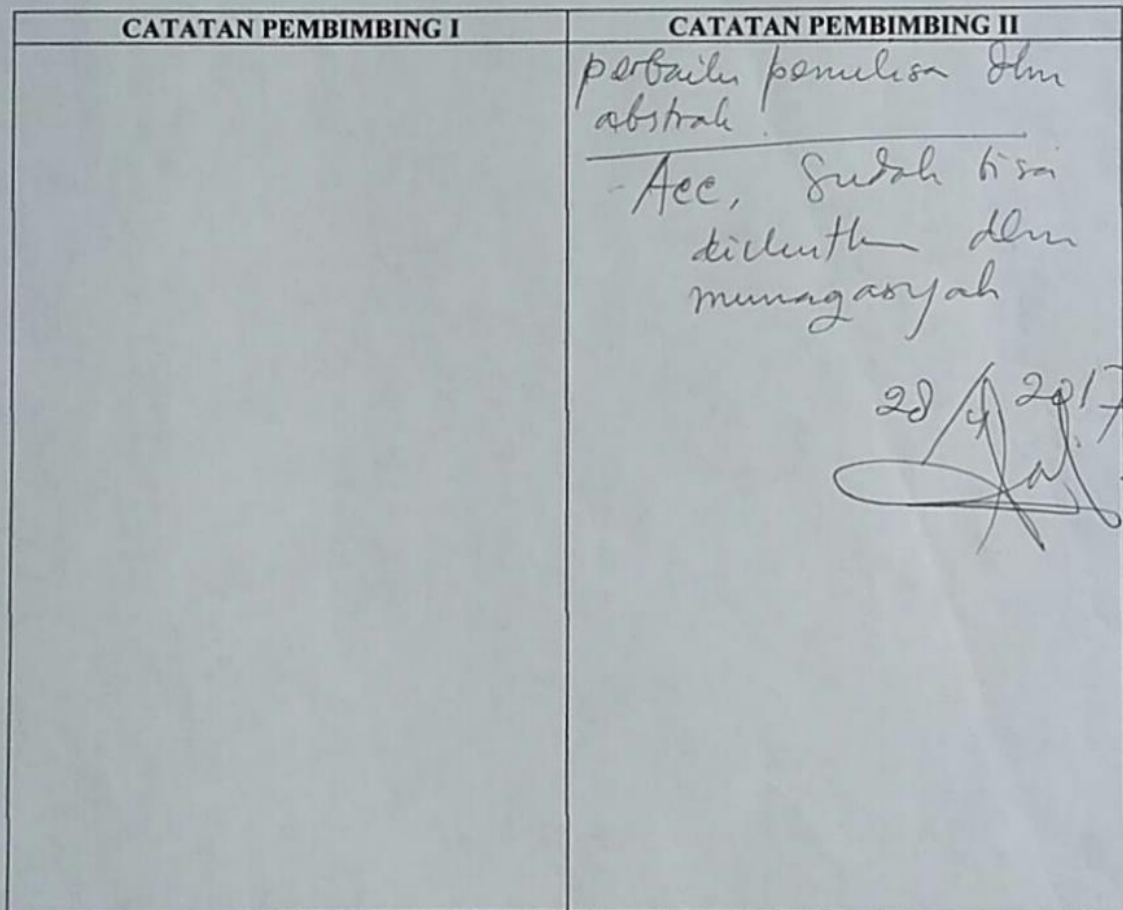 CATATAN PEMBIMBING I
CATATAN PEMBIMBING II
perbaiki penulisan dlm
abstrak
- Acc, sudah bisa
dlm
munaqasyah
28 4 2017